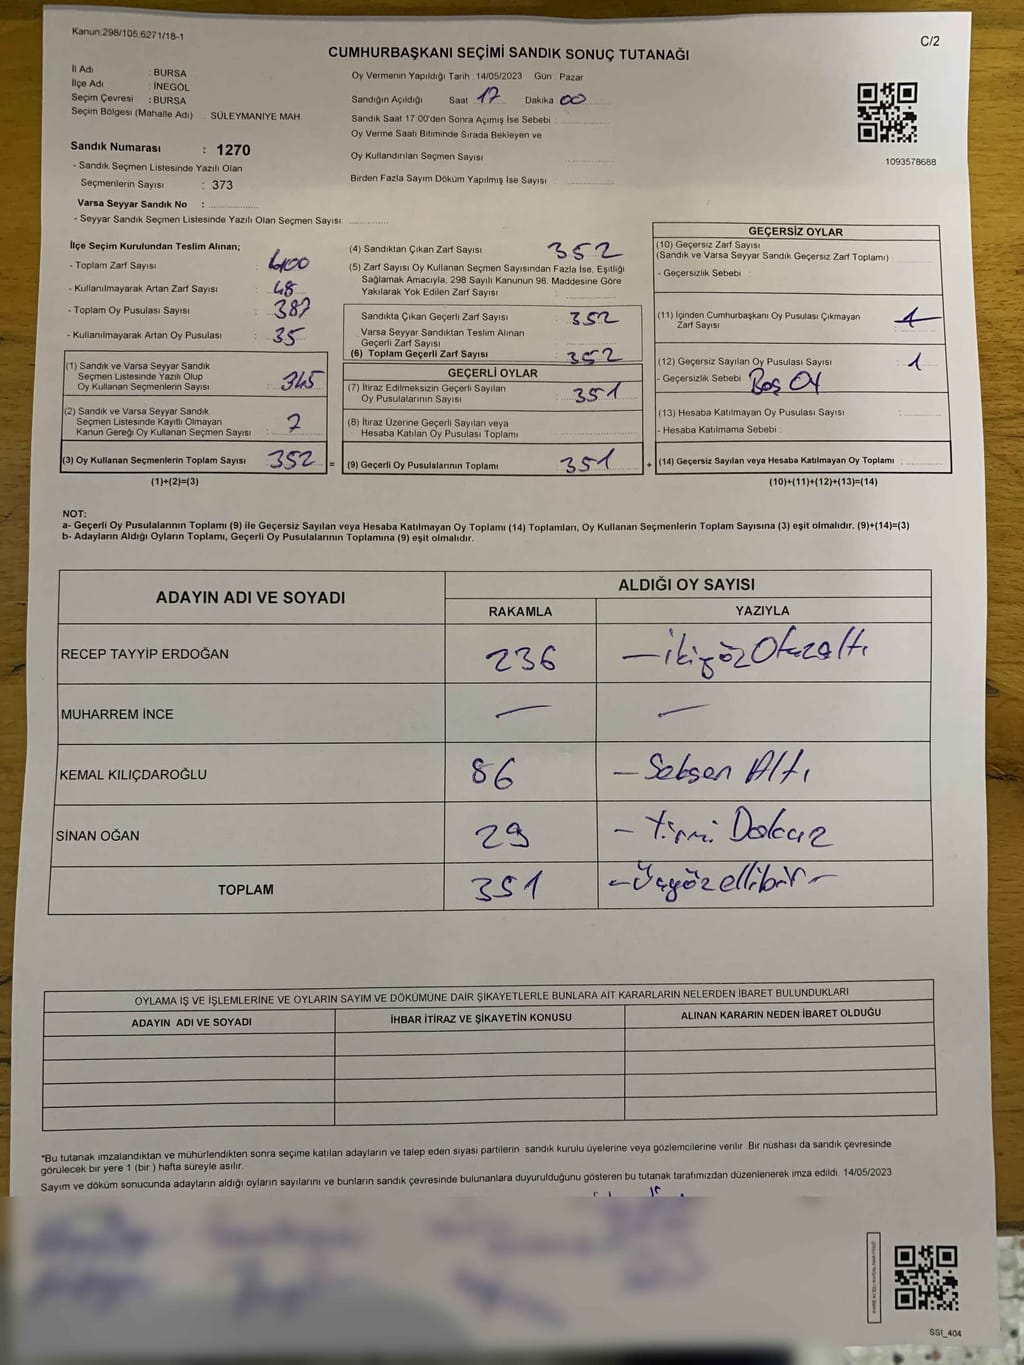 Kanun.298/105,6271/18-1
C/2
CUMHURBAŞKANI SEÇİMİ SANDIK SONUÇ TUTANAĞI
İl Adı : BURSA
İlçe Adı : İNEGÖL
Seçim Çevresi : BURSA
Seçim Bölgesi (Mahalle Adı) : SÜLEYMANİYE MAH.
Oy Vermenin Yapıldığı Tarih : 14/05/2023 Gün : Pazar
Sandığın Açıldığı Saat : 17 Dakika 00
Sandık Saat 17.00'den Sonra Açılmış İse Sebebi :
Oy Verme Saati Bitiminde Sırada Bekleyen ve
Oy Kullandırılan Seçmen Sayısı
Birden Fazla Sayım Döküm Yapılmış İse Sayısı :
1093578688
Sandık Numarası : 1270
- Sandık Seçmen Listesinde Yazılı Olan
Seçmenlerin Sayısı : 373
Varsa Seyyar Sandık No :
- Seyyar Sandık Seçmen Listesinde Yazılı Olan Seçmen Sayısı
İlçe Seçim Kurulundan Teslim Alınan;
- Toplam Zarf Sayısı : 400
- Kullanılmayarak Artan Zarf Sayısı : 48
- Toplam Oy Pusulası Sayısı : 387
- Kullanılmayarak Artan Oy Pusulası : 35
(1) Sandık ve Varsa Seyyar Sandık
Seçmen Listesinde Yazılı Olup
Oy Kullanan Seçmenlerin Sayısı : 345
(2) Sandık ve Varsa Seyyar Sandık
Seçmen Listesinde Kayıtlı Olmayan
Kanun Gereği Oy Kullanan Seçmen Sayısı : 7
(3) Oy Kullanan Seçmenlerin Toplam Sayısı : 352 =
(1)+(2)=(3)
(4) Sandıktan Çıkan Zarf Sayısı 352
(5) Zarf Sayısı Oy Kullanan Seçmen Sayısından Fazla İse, Eşitliği
Sağlamak Amacıyla, 298 Sayılı Kanunun 98. Maddesine Göre
Yakılarak Yok Edilen Zarf Sayısı :
Sandıkta Çıkan Geçerli Zarf Sayısı : 352
Varsa Seyyar Sandıktan Teslim Alınan
Geçerli Zarf Sayısı :
(6) Toplam Geçerli Zarf Sayısı : 352
GEÇERLİ OYLAR
(7) İtiraz Edilmeksizin Geçerli Sayılan
Oy Pusulalarının Sayısı : 351
(8) İtiraz Üzerine Geçerli Sayılan veya
Hesaba Katılan Oy Pusulası Toplamı
(9) Geçerli Oy Pusulalarının Toplamı : 351 +
GEÇERSİZ OYLAR
(10) Geçersiz Zarf Sayısı
(Sandık ve Varsa Seyyar Sandık Geçersiz Zarf Toplamı) :
- Geçersizlik Sebebi :
(11) İçinden Cumhurbaşkanı Oy Pusulası Çıkmayan
Zarf Sayısı : 1
(12) Geçersiz Sayılan Oy Pusulası Sayısı : 1
- Geçersizlik Sebebi : Boş Oy
(13) Hesaba Katılmayan Oy Pusulası Sayısı :
- Hesaba Katılmama Sebebi :
(14) Geçersiz Sayılan veya Hesaba Katılmayan Oy Toplamı :
(10)+(11)+(12)+(13)=(14)
NOT:
a- Geçerli Oy Pusulalarının Toplamı (9) ile Geçersiz Sayılan veya Hesaba Katılmayan Oy Toplamı (14) Toplamları, Oy Kullanan Seçmenlerin Toplam Sayısına (3) eşit olmalıdır. (9)+(14)=(3)
b- Adayların Aldığı Oyların Toplamı, Geçerli Oy Pusulalarının Toplamına (9) eşit olmalıdır.
ADAYIN ADI VE SOYADI
ALDIĞI OY SAYISI
RAKAMLA YAZIYLA
RECEP TAYYİP ERDOĞAN 236 — ikiyüz Otuzaltı
MUHARREM İNCE — —
KEMAL KILIÇDAROĞLU 86 — Seksen Altı
SİNAN OĞAN 29 — Yirmi Dokuz
TOPLAM 351 — Üçyüzellibir —
OYLAMA İŞ VE İŞLEMLERİNE VE OYLARIN SAYIM VE DÖKÜMÜNE DAİR ŞİKAYETLERLE BUNLARA AİT KARARLARIN NELERDEN İBARET BULUNDUKLARI
ADAYIN ADI VE SOYADI İHBAR İTİRAZ VE ŞİKAYETİN KONUSU ALINAN KARARIN NEDEN İBARET OLDUĞU
*Bu tutanak imzalandıktan ve mühürlendikten sonra seçime katılan adayların ve talep eden siyasi partilerin sandık kurulu üyelerine veya gözlemcilerine verilir. Bir nüshası da sandık çevresinde
görülecek bir yere 1 (bir) hafta süreyle asılır.
Sayım ve döküm sonucunda adayların aldığı oyların sayılarını ve bunların sandık çevresinde bulunanlara duyurulduğunu gösteren bu tutanak tarafımızdan düzenlenerek imza edildi. 14/05/2023
SSI_404